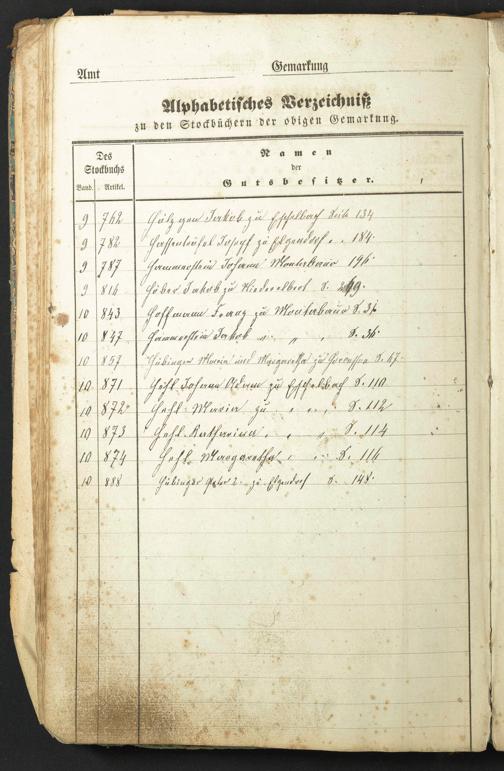 Amt Gemarkung
Alphabetisches Verzeichniß
zu den Stockbüchern der obigen Gemarkung.
Des Stockbuchs
Band. Artikel.
Namen
der
Gutsbesitzer.
9 762 Jakob zu Eschelbach Seite 134
9 782 Hassenteufel Josef zu Elgendorf " 184
9 787 Hammerstein Johann Montabaur 196
9 814 Höber Jakob zu Niederelbert S.
10 843 Hoffmann Franz zu Montabaur S. 31
10 847 Hammerstein Jakob " " " S. 36
10 857 Hübinger Maria und Margaretha zu S. 67
10 871 Hehl Johann Adam zu Eschelbach S. 110
10 872 Hehl Maria zu " " " S. 112
10 873 Hehl Katharina " " " S. 114
10 874 Hehl Margaretha " " " S. 116
10 888 Hübinger Peter 2. zu Elgendorf S. 148